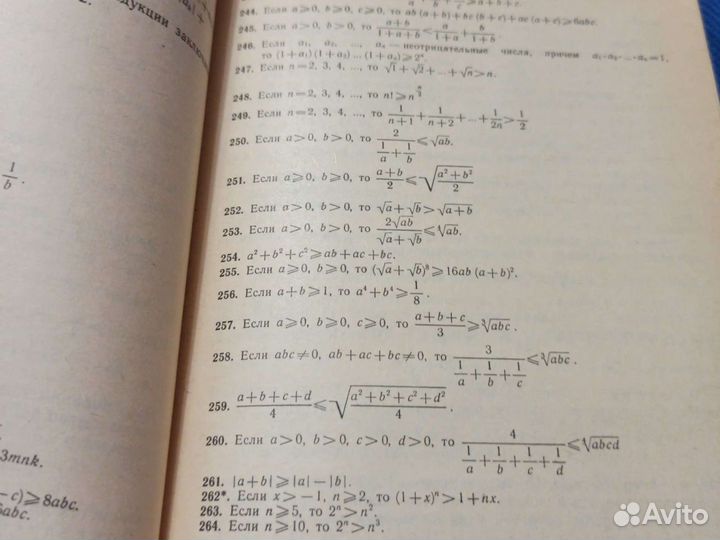 дукции заклю
2.
1/b.
3mnk.
– c) ⩾ 8abc.
6abc.
244. Если a⩾0, b⩾0, c⩾0, то ab (a+b)+bc (b+c)+ac (a+c)⩾6abc.
245. Если a⩾0, b⩾0, то (a+b)/(1+a+b) < a/(1+a) + b/(1+b).
246. Если a₁, a₂, ..., aₙ — неотрицательные числа, причем a₁·a₂·...·aₙ=1,
то (1+a₁)(1+a₂) ... (1+aₙ)⩾2ⁿ.
247. Если n=2, 3, 4, ..., то √1+√2+...+√n>n.
248. Если n=2, 3, 4, ..., то n!⩾n^(n/2)
249. Если n=2, 3, 4, ..., то 1/(n+1)+1/(n+2)+...+1/(2n)>1/2
250. Если a>0, b>0, то 2/(1/a+1/b)⩽√ab.
251. Если a⩾0, b⩾0, то (a+b)/2⩽√((a²+b²)/2)
252. Если a>0, b>0, то √a+√b>√(a+b)
253. Если a>0, b>0, то 2√ab/(√a+√b)⩽⁴√ab.
254. a²+b²+c²⩾ab+ac+bc.
255. Если a⩾0, b⩾0, то (√a+√b)⁸⩾16ab (a+b)².
256. Если a+b⩾1, то a⁴+b⁴⩾1/8.
257. Если a⩾0, b⩾0, c⩾0, то (a+b+c)/3⩾³√abc.
258. Если abc≠0, ab+ac+bc≠0, то 3/(1/a+1/b+1/c)⩽³√abc.
259. (a+b+c+d)/4⩽√((a²+b²+c²+d²)/4).
260. Если a>0, b>0, c>0, d>0, то 4/(1/a+1/b+1/c+1/d)⩽⁴√abcd
261. |a+b|⩾|a|−|b|.
262*. Если x>−1, n⩾2, то (1+x)ⁿ>1+nx.
263. Если n⩾5, то 2ⁿ>n².
264. Если n⩾10, то 2ⁿ>n³.
Avito